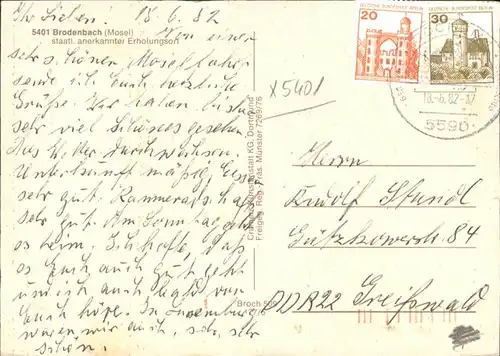 Ihr Lieben! 18.6.82
5401 Brodenbach (Mosel)
staatl. anerkannter Erholungsort
Von einer
sehr schönen Moselfahrt
sende ich Euch herzliche
Grüße. Wir haben bisher
sehr viel Schönes gesehen.
Das Wetter durchwachsen,
Unterkunft mäßig, Essen
sehr gut. Kameradschaft
sehr gut. Am Sonntag geht
es heim. Ich hoffe, daß
es Euch auch gut geht
und ich auch bald von
Euch höre. In Luxemburg
waren wir auch, sehr, sehr
schön.
x5401
Cramers Kunstanstalt KG, Dortmund
Freigeg. Reg. Präs. Münster 7269/76
Broch 509
DEUTSCHE BUNDESPOST BERLIN
20
DEUTSCHE BUNDESPOST BERLIN
30
18.-6.82-17
5590
Herrn
Rudolf Standl
Gützkowerstr. 84
DDR 22 Greifswald